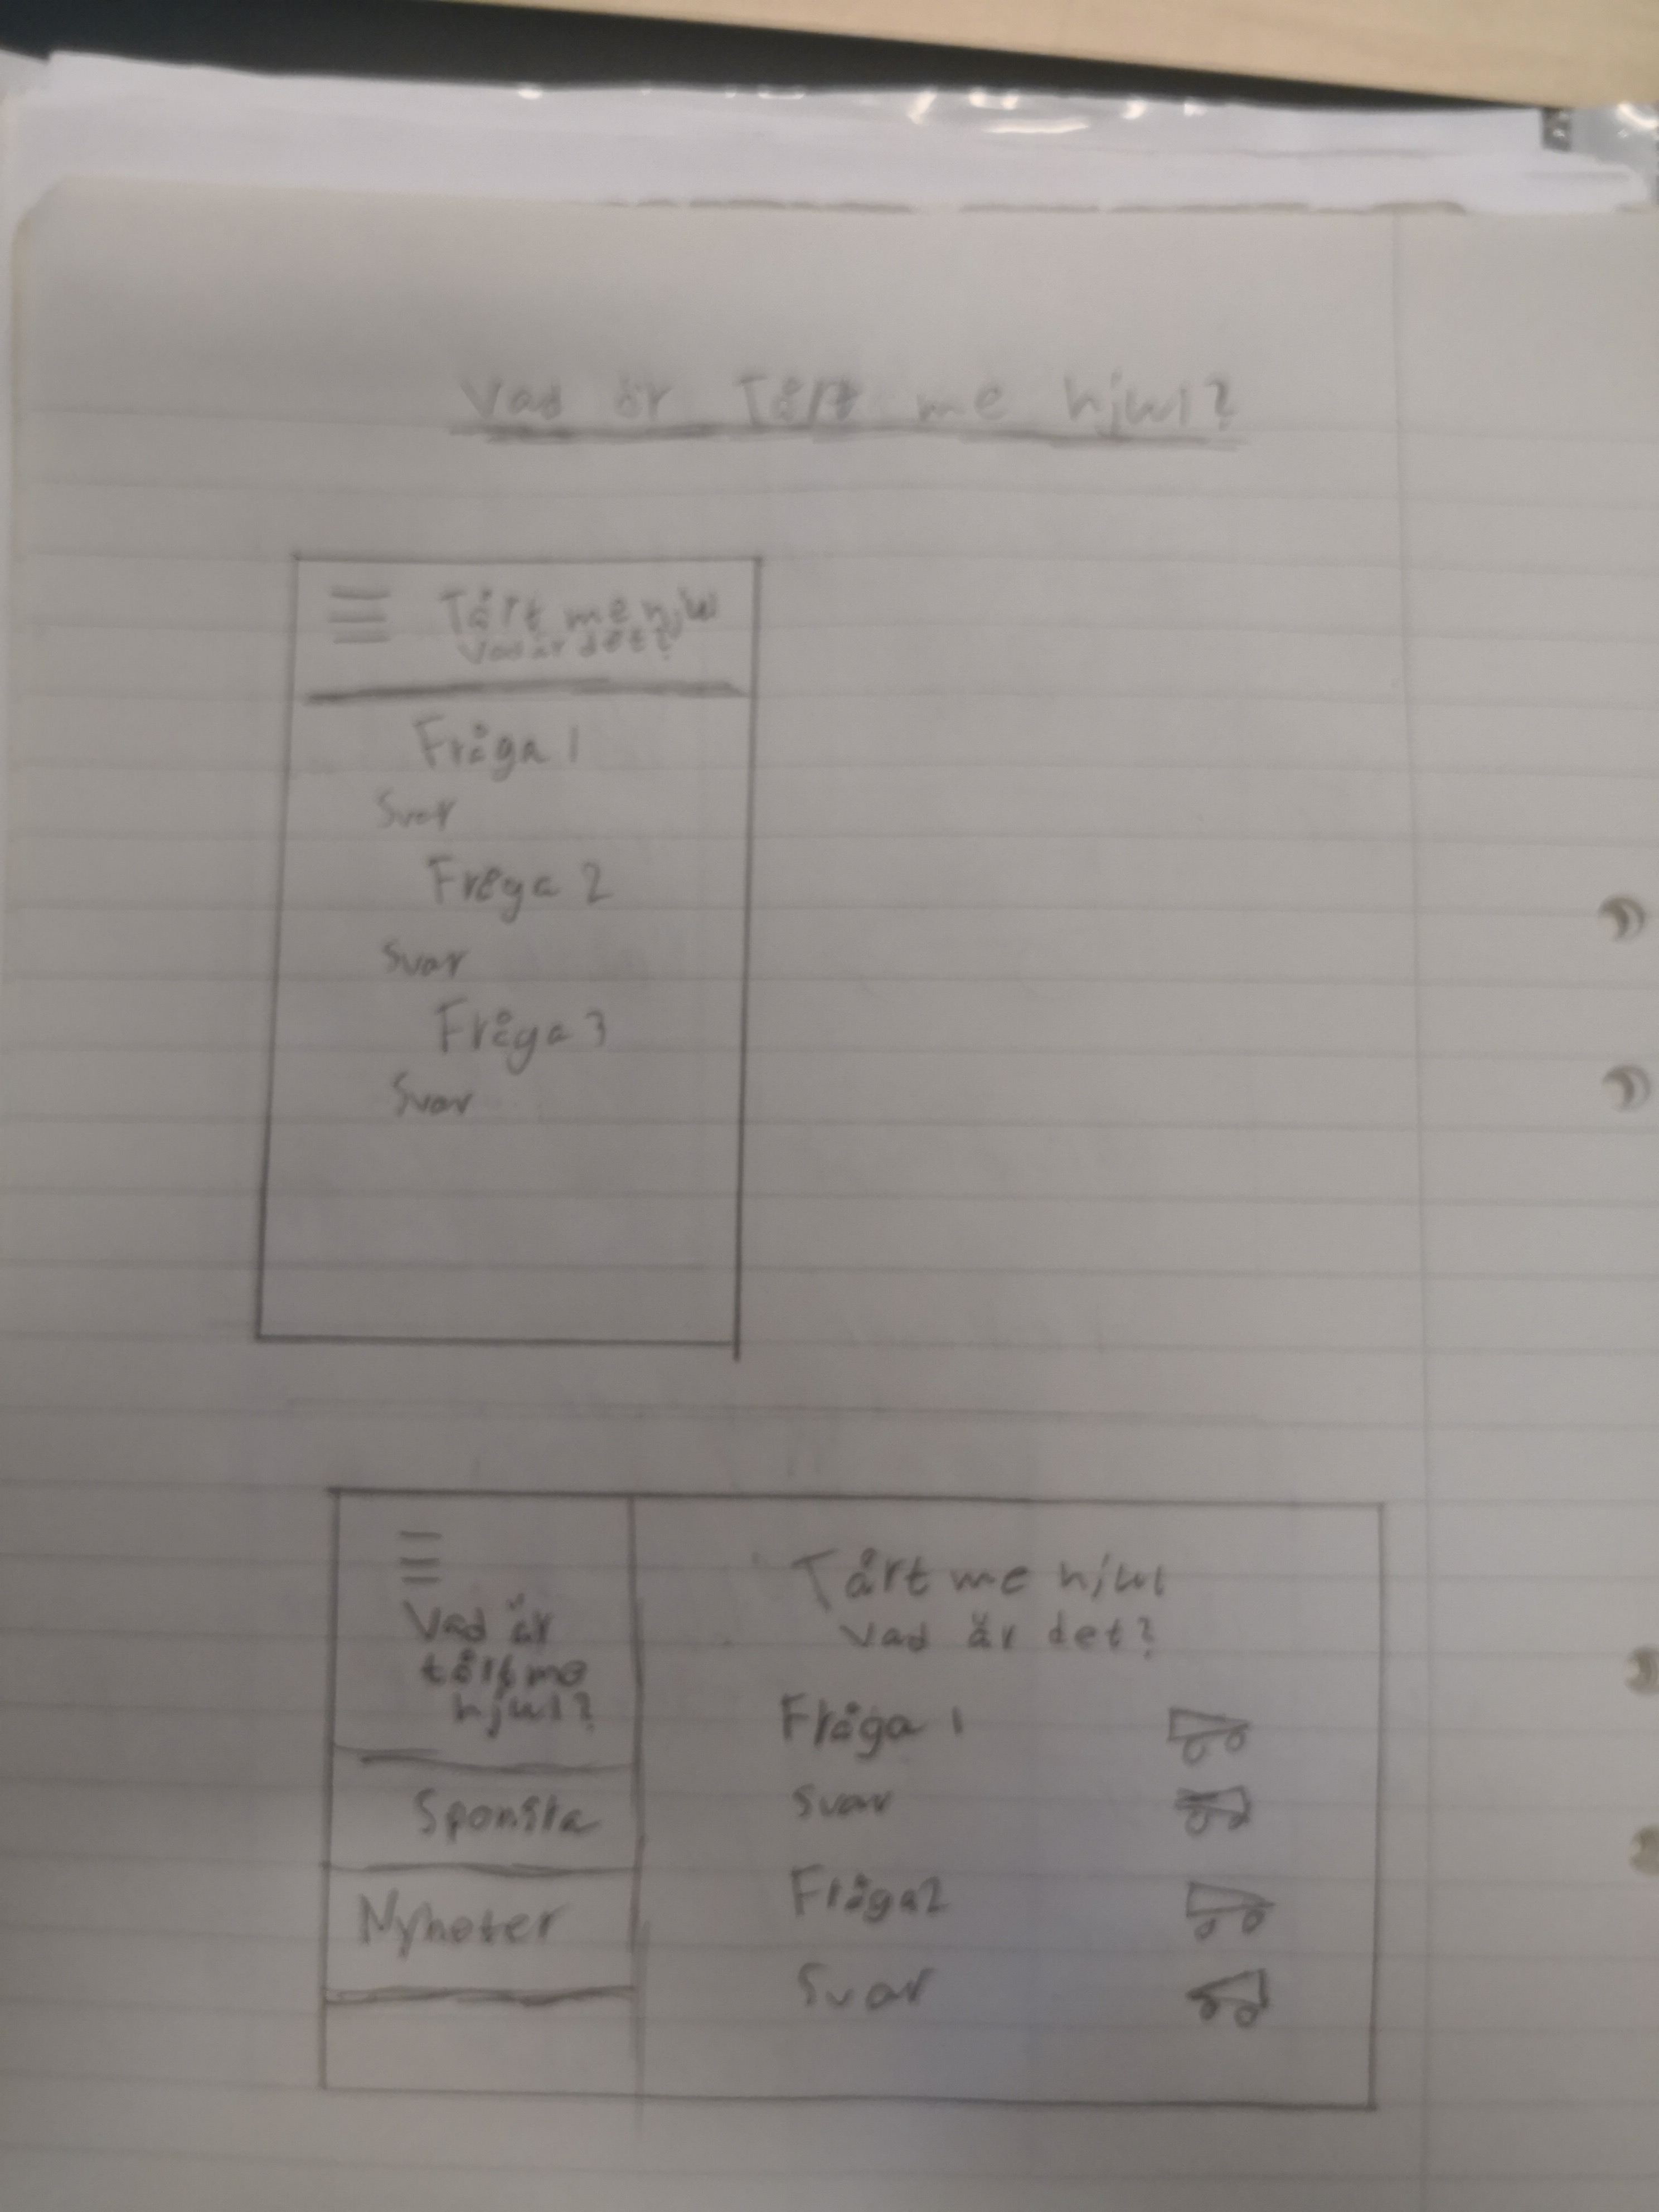 Vad är Tårt me hjwl?
Tårt me hjwl
Vad är det?
Fråga 1
Svar
Fråga 2
Svar
Fråga 3
Svar
Vad är
tårt me
hjwl?
Sponsra
Nyheter
Tårt me hjwl
Vad är det?
Fråga 1
Svar
Fråga 2
Svar